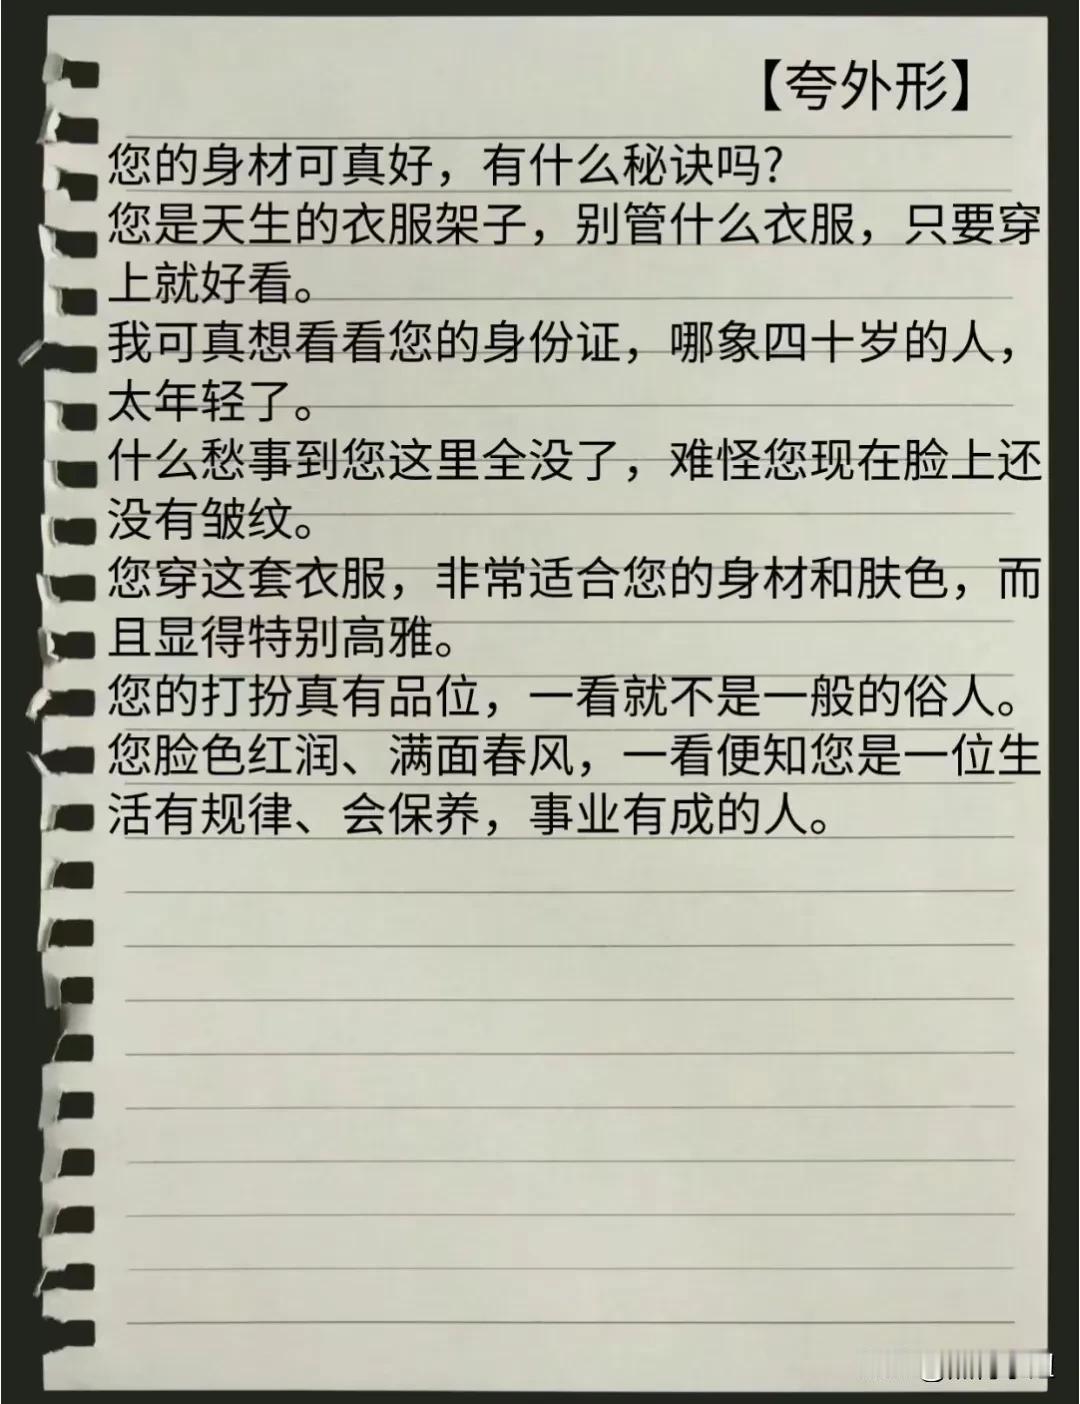 【夸外形】
您的身材可真好，有什么秘诀吗？
您是天生的衣服架子，别管什么衣服，只要穿
上就好看。
我可真想看看您的身份证，哪象四十岁的人，
太年轻了。
什么愁事到您这里全没了，难怪您现在脸上还
没有皱纹。
您穿这套衣服，非常适合您的身材和肤色，而
且显得特别高雅。
您的打扮真有品位，一看就不是一般的俗人。
您脸色红润、满面春风，一看便知您是一位生
活有规律、会保养，事业有成的人。